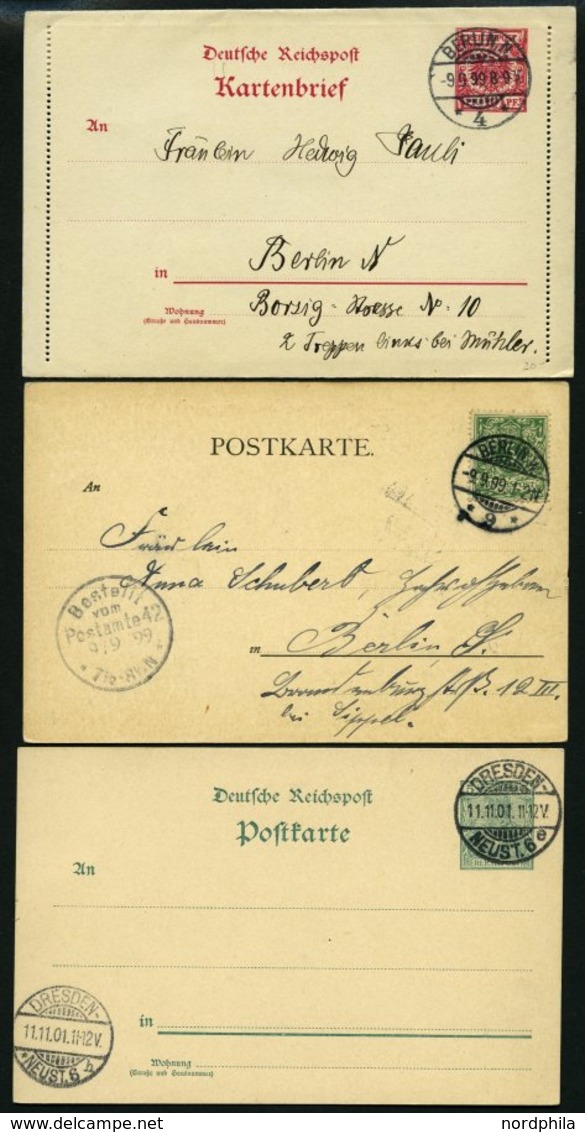 Deutsche Reichspost
Kartenbrief
BERLIN N.
-9.9.99.8-9
* 4 *
PF
An
Fräulein Hedwig Pauli
in Berlin N
Wohnung
(Straße und Hausnummer)
Borsig-Strasse No. 10
2 Treppen links bei Mühler.
POSTKARTE.
BERLIN
-9.9.99.1-2N
* 9 *
An
Fräulein
Anna Schubert,
in Berlin S.
Brandenburgstr. 12 III.
bei
Bestellt
vom
Postamte 42
9/9 99
* 7½-8½N *
Deutsche Reichspost
Postkarte
DRESDEN-
11.11.01.11-12V.
NEUST.6 e
An
in
Wohnung
(Straße und Hausnummer)
DRESDEN-
11.11.01.11-12V.
*NEUST.6 b
www.delcampe.net
nordphila